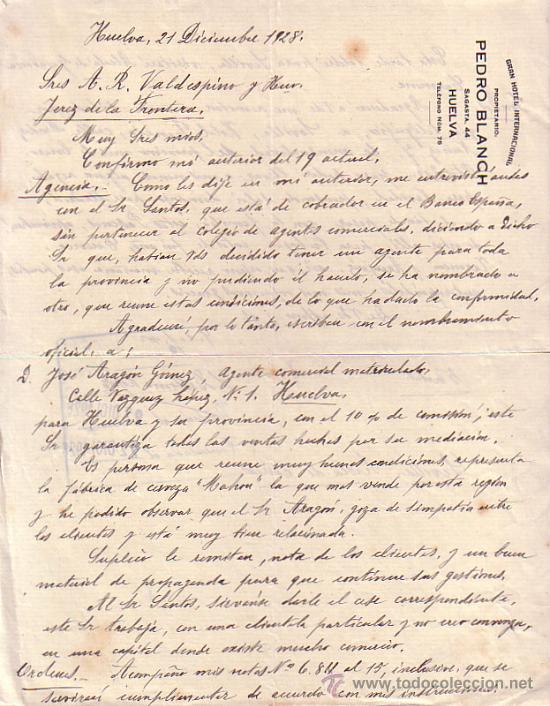 GRAN HOTEL INTERNACIONAL
PROPIETARIO:
PEDRO BLANCH
SAGASTA, 44
HUELVA
TELÉFONO NÚM. 75
Huelva, 21 Diciembre 1928.
Sres A. R. Valdespino y Hno.
Jerez de la Frontera.
Muy Sres mios,
Confirmo mi anterior del 19 actual.
Agencia.- Como les dije en mi anterior, me entrevisté antes
con el Sr Santos, que está de cobrador en el Banco España,
sin pertenecer al colegio de agentes comerciales, diciendo a dicho
Sr que, habian Vds decidido tener un agente para toda
la provincia y no pudiendo él hacerlo, se ha nombrado a
otro, que reune estas condiciones, de lo que ha dado la conformidad,
Agradecere, por lo tanto, escriban con el nombramiento
oficial, a:
D. José Aragón Gómez, Agente comercial matriculado,
Calle Vazquez López, Nº 1. Huelva,
para Huelva y su provincia, con el 10 % de comisión; este
Sr garantiza todas las ventas hechas por su mediación.
Es persona que reune muy buenas condiciones, representa
la fábrica de cerveza "Mahou" la que mas vende por esta región
y he podido observar que el Sr Aragón, goza de simpatia entre
los clientes y está muy bien relacionado.
Suplico le remitan, nota de los clientes, y un buen
material de propaganda para que continue sus gestiones,
Al Sr Santos, sirvanse darle el cese correspondiente,
este Sr trabaja, con una clientela particular y no creo convenga,
en una capital donde existe mucho comercio.
Ordenes.- Acompaño mis notas Nº 6.811 al 15, inclusive, que se
servirán cumplimentar de acuerdo con mis instrucciones.
todocoleccion
www.todocoleccion.net